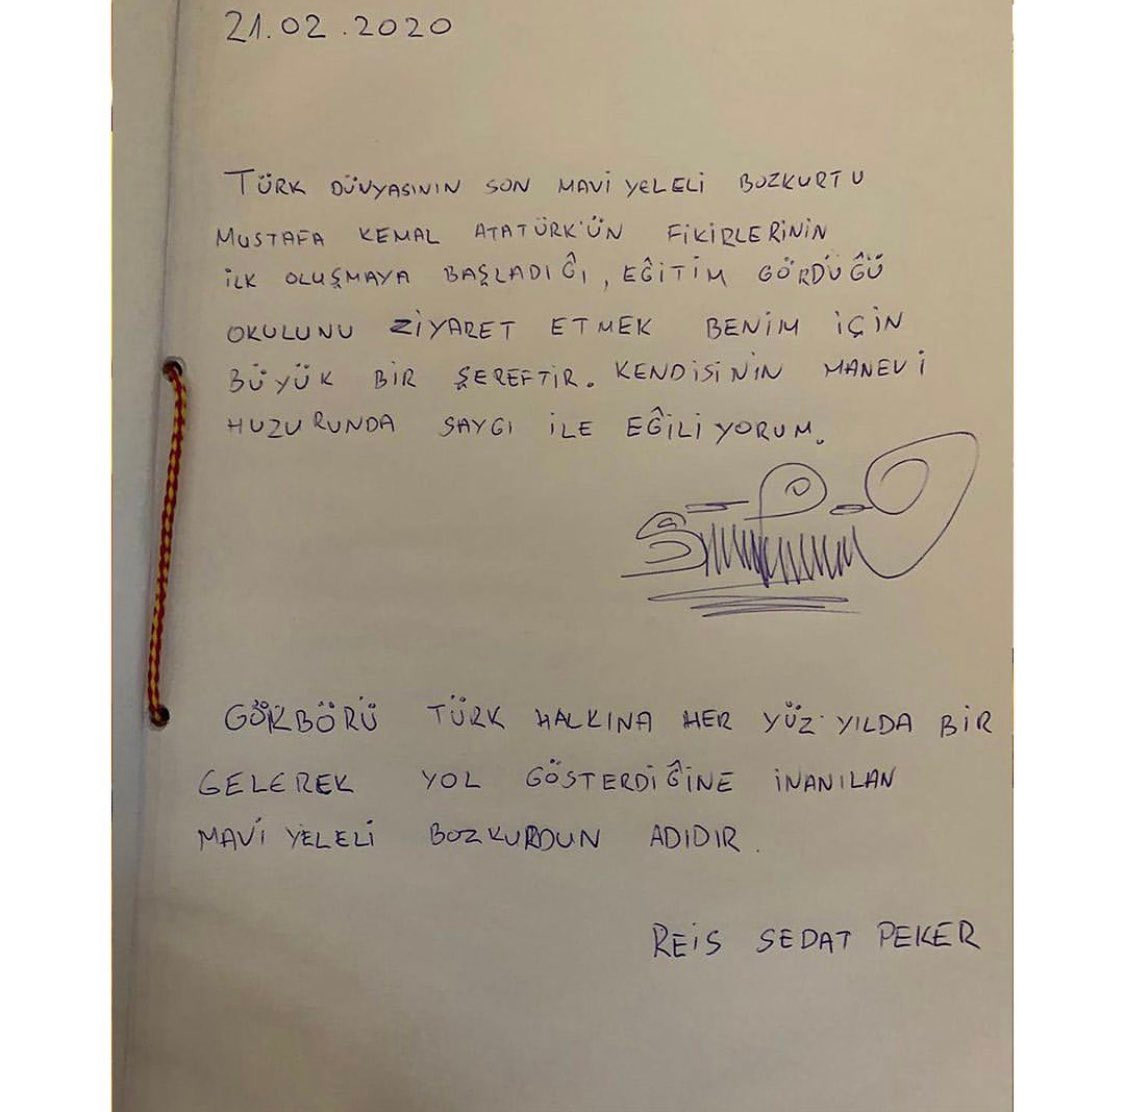 21.02.2020
TÜRK DÜNYASININ SON MAVİ YELELİ BOZKURTU
MUSTAFA KEMAL ATATÜRK'ÜN FİKİRLERİNİN
İLK OLUŞMAYA BAŞLADIĞI, EĞİTİM GÖRDÜĞÜ
OKULUNU ZİYARET ETMEK BENİM İÇİN
BÜYÜK BİR ŞEREFTİR. KENDİSİNİN MANEVİ
HUZURUNDA SAYGI İLE EĞİLİYORUM.
GÖKBÖRÜ TÜRK HALKINA HER YÜZ YILDA BİR
GELEREK YOL GÖSTERDİĞİNE İNANILAN
MAVİ YELELİ BOZKURDUN ADIDIR.
REİS SEDAT PEKER